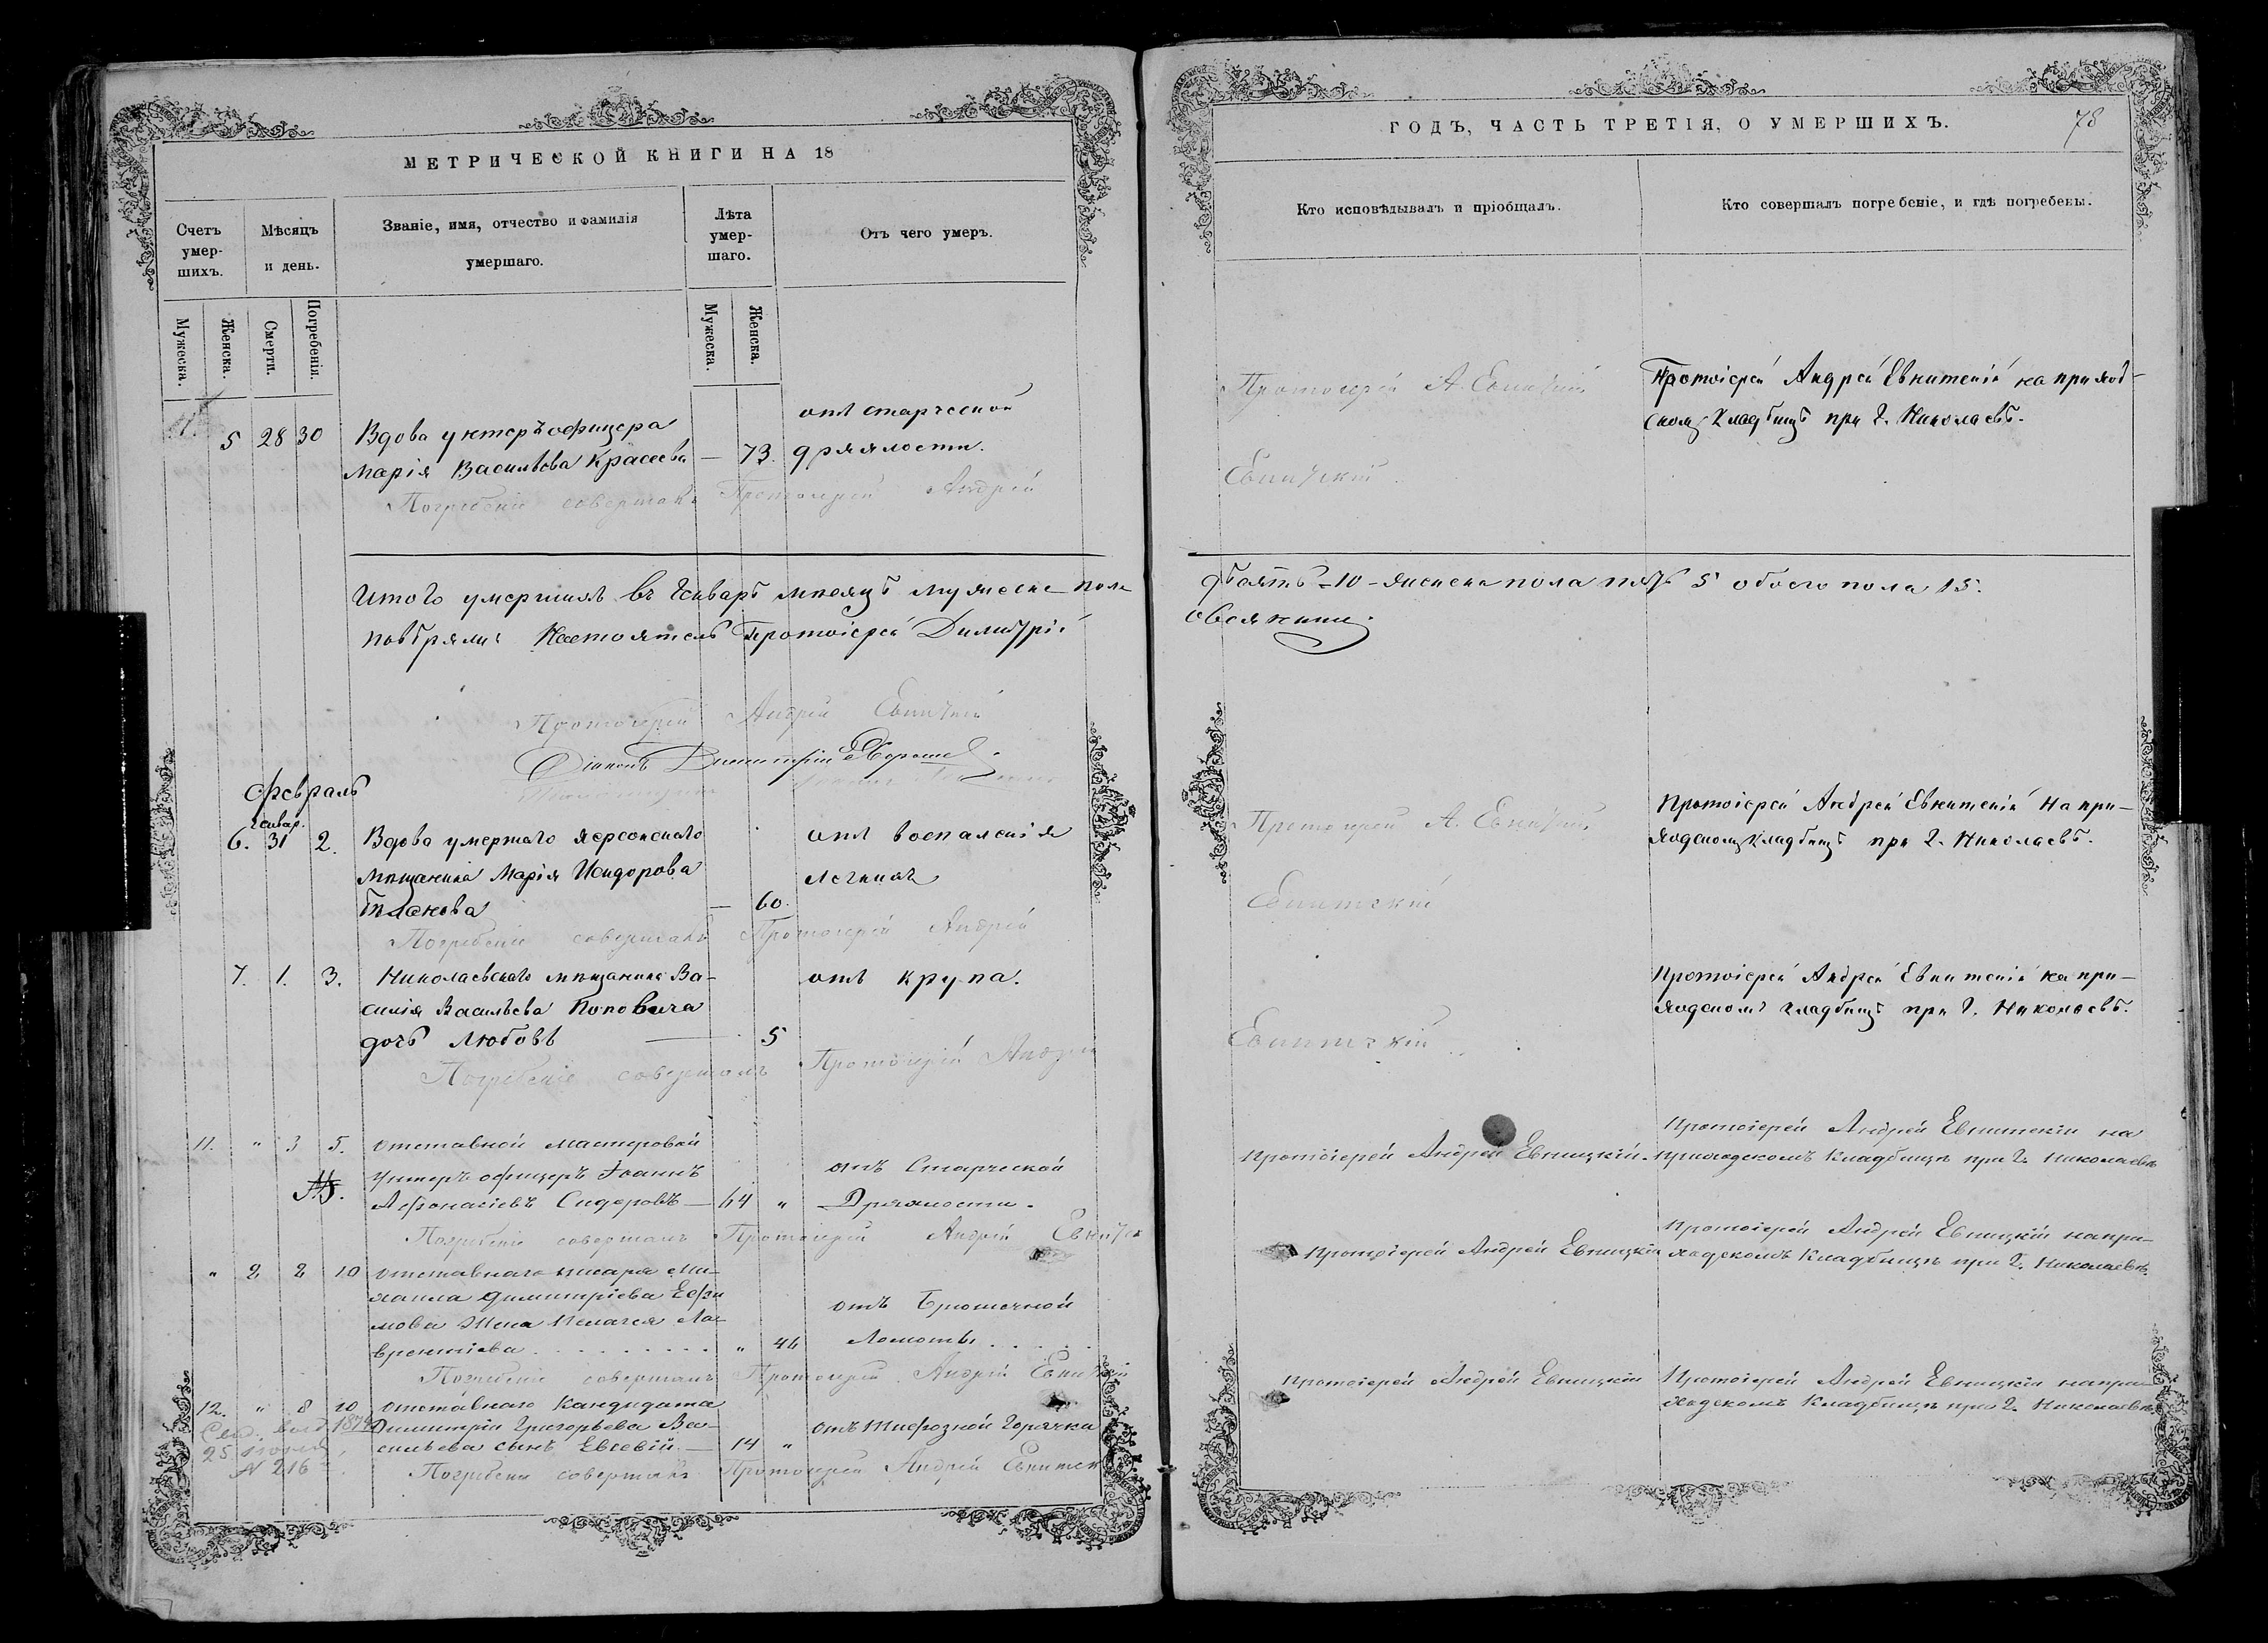 МЕТРИЧЕСКОЙ КНИГИ НА 18
Счетъ умер-шихъ.
Мѣсяцъ и день.
Званіе, имя, отчество и фамилія умершаго.
Лѣта умер-шаго.
Отъ чего умеръ.
Мужеска.
Женска.
Смерти.
Погребенія.
Мужеска.
Женска.
5 28 30 Вдова унтеръ офицера
Марія Васильева Красева — 73.
отъ старческой
дряхлости.
Погребеніе совершалъ Протоіерей Андрей
Итого умершихъ въ Январѣ мѣсяцѣ мужеска пола
повѣряли: Настоятель Протоіерей Димитрій
Протоіерей Андрей Евницкій
Діаконъ Димитрій
Февраль
Январ.
6. 31 2. Вдова умершаго херсонскаго
мѣщанина Марія Исидорова
Бѣланова — 60.
отъ воспаленія
легкихъ
Погребеніе совершалъ Протоіерей Андрей
7. 1. 3. Николаевскаго мѣщанина Ва-
силія Васильева Поповича
дочь Любовь — 5
отъ крупа.
Погребеніе совершалъ Протоіерей Андрей
11. " 3 5. отставной мастеровой
Унтеръ офицеръ Іоаннъ
Афонасіевъ Сидоровъ — 64 "
отъ Старческой
Дряхлости.
Погребеніе совершалъ Протоіерей Андрей Евницк
" 2 2 10 отставнаго писаря Ми-
хаила Димитріева Ефи
мова Жена Пелагея Ла-
врентіева " 46
отъ Брюшечной
Ломоты
Погребеніе совершалъ Протоіерей Андрей Евницкій
12. " 8 10 отставнаго Кандидата
Димитрія Григорьева Ва-
сильева сынъ Евсевій — 14 "
отъ Тифозной Горячки
1874
25 Іюня
N 216
Погребеніе совершалъ Протоіерей Андрей Евницк
ГОДЪ, ЧАСТЬ ТРЕТІЯ, О УМЕРШИХЪ.
78
Кто исповѣдывалъ и пріобщалъ.
Кто совершалъ погребеніе, и гдѣ погребены.
Протоіерей А. Евницкій
Протоіерей Андрей Евницкій на приход-
скомъ Кладбищѣ при г. Николаевѣ.
Евницкій
десять - 10 - женска пола пять 5 обоего пола 15.
Протоіерей А. Евницкій
Протоіерей Андрей Евницкій на при-
ходскомъ Кладбищѣ при г. Николаевѣ.
Евницкій
Протоіерей Андрей Евницкій на при-
ходскомъ кладбищѣ при г. Николаевѣ.
Евницкій
Протоіерей Андрей Евницкій.
Протоіерей Андрей Евницкій на
приходскомъ Кладбищѣ при г. Николаевѣ
Протоіерей Андрей Евницкій
Протоіерей Андрей Евницкій напри-
ходскомъ Кладбищѣ при г. Николаевѣ.
Протоіерей Андрей Евницкій
Протоіерей Андрей Евницкій напри-
ходскомъ Кладбищѣ при г. Николаевѣ.